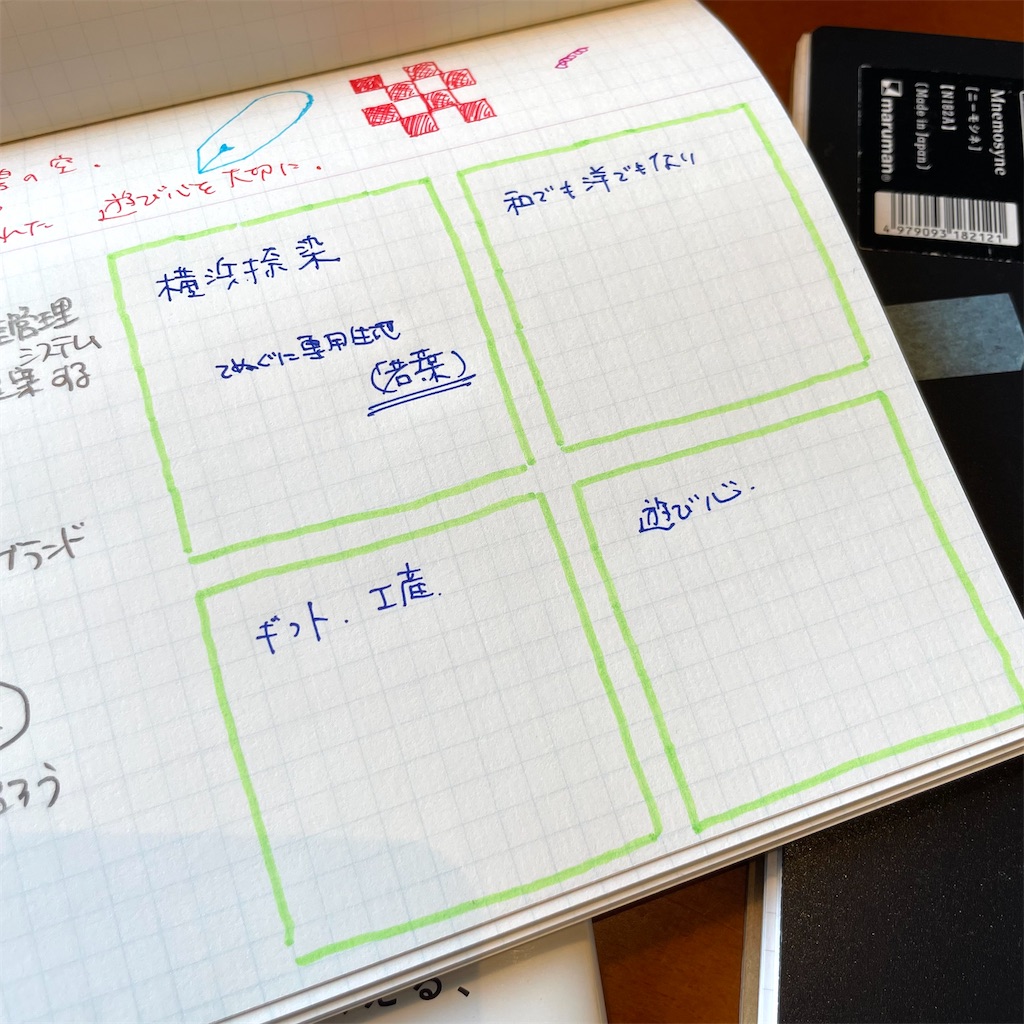 の空.
れた 遊び心を大切に.
管理
システム
する
ブランド
ろう
横浜捺染
てぬぐい専用生地
(若葉)
和でも洋でもない
ギフト. 工産.
遊び心.
える、
Mnemosyne
[ニーモシネ]
[N182A]
[Made in Japan]
maruman®
4 979093 182121